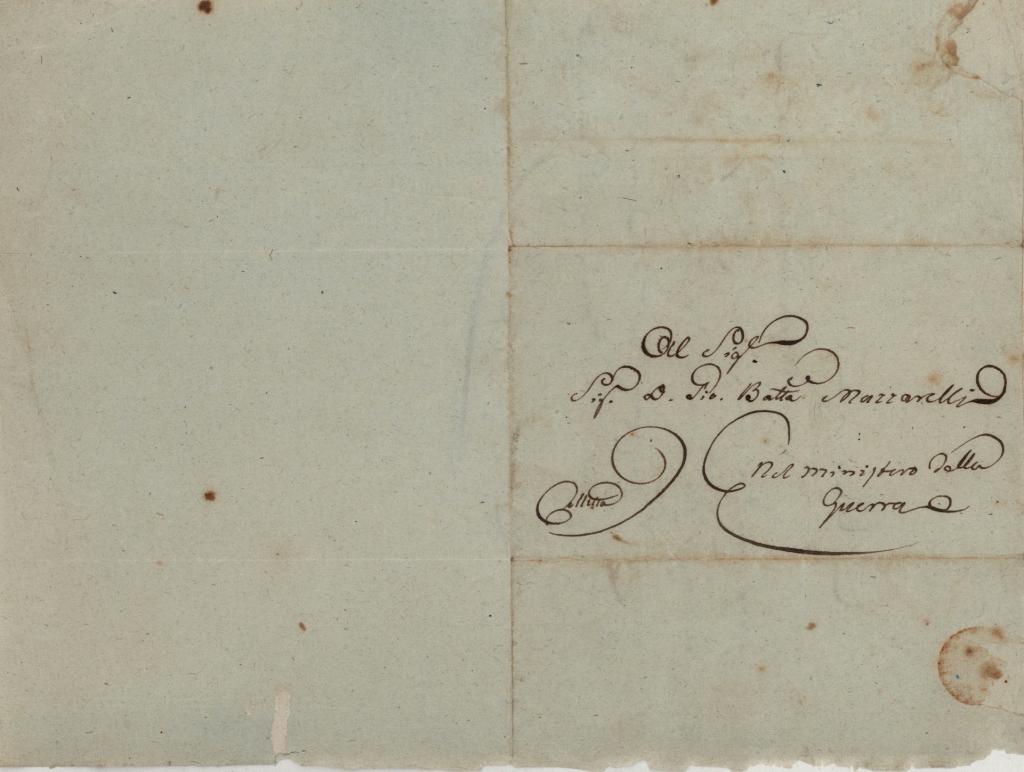 Al Sig.
Sig. D. Gio. Batta Mazzarelli
Nel ministero della
Guerra